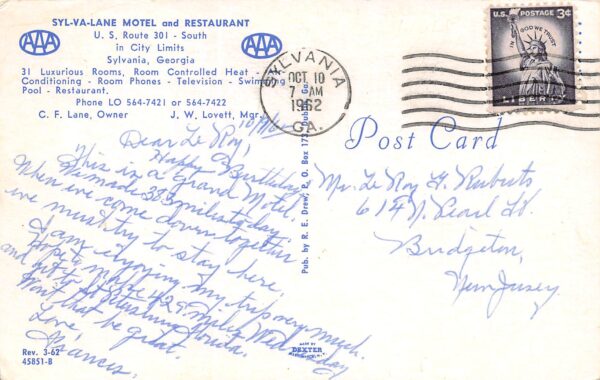 SYL-VA-LANE MOTEL and RESTAURANT
U. S. Route 301 - South
in City Limits
Sylvania, Georgia
AAA
AAA
31 Luxurious Rooms, Room Controlled Heat -
Conditioning - Room Phones - Television - Swim
Pool - Restaurant.
Phone LO 564-7421 or 564-7422
C. F. Lane, Owner J. W. Lovett, Mgr.
SYLVANIA
OCT 10
7 AM
1962
GA.
U.S. POSTAGE 3¢
IN GOD WE TRUST
LIBERTY
Post Card
Dear Le Roy,
Happy Birthday.
This is a grand Motel.
We made 383 miles today.
When we come down together
we must try to stay here.
I am enjoying my trip very much.
Hope to make 429 miles Wednesday
and get to St Petersburg Florida.
Won't that be great.
Love,
Frances.
Mr. Le Roy G. Ruberts
614 N. Pearl St.
Bridgeton,
New Jersey
Pub. by R. E. Drew, P. O. Box 173, Dublin, Ga.
MADE BY
DEXTER
Rev. 3-62
45851-B